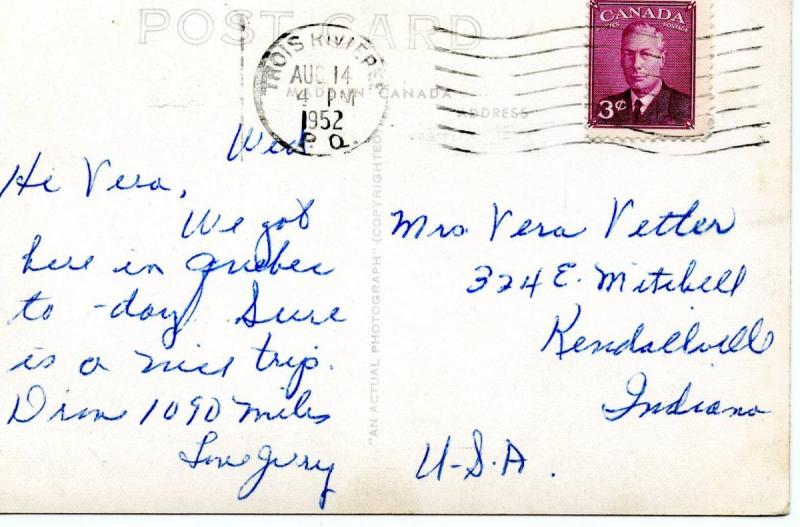 POST CARD
TROIS RIVIERES
AUG 14
4 PM
1952
P.Q.
MADE IN CANADA
ADDRESS
CANADA
POSTES POSTAGE
3¢
"AN ACTUAL PHOTOGRAPH" (COPYRIGHTED)
Wed.
Hi Vera,
We got
here in Quebec
to-day Sure
is a nice trip.
Drove 1090 miles
Love Jerry
Mrs Vera Vetter
324 E. Mitchell
Kendallville
Indiana
U-S.A.